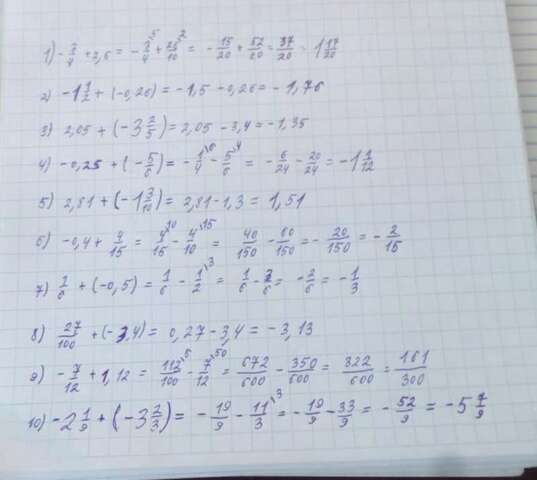 1) -3/4 + 2,6 = -3/4 + 26/10 = -15/20 + 52/20 = 37/20 = 1 17/20
2) -1 1/2 + (-0,26) = -1,5 - 0,26 = -1,76
3) 2,05 + (-3 2/5) = 2,05 - 3,4 = -1,35
4) -0,25 + (-5/6) = -1/4 \6 - 5/6 \4 = -6/24 - 20/24 = -1 1/12
5) 2,81 + (-1 3/10) = 2,81 - 1,3 = 1,51
6) -0,4 + 4/15 = 4/15 \10 - 4/10 \15 = 40/150 - 60/150 = -20/150 = -2/15
7) 1/6 + (-0,5) = 1/6 - 1/2 \3 = 1/6 - 3/6 = -2/6 = -1/3
8) 27/100 + (-3,4) = 0,27 - 3,4 = -3,13
9) -7/12 + 1,12 = 112/100 - 7/12 \50 = 672/600 - 350/600 = 322/600 = 161/300
10) -2 1/9 + (-3 2/3) = -19/9 - 11/3 \3 = -19/9 - 33/9 = -52/9 = -5 7/9